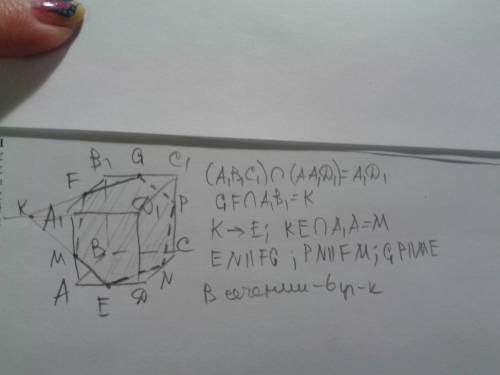 B₁ G C₁
F
K A₁ D₁ P
B C
M N
A E D
(A₁B₁C₁)∩(AA₁D₁)=A₁D₁
GF∩A₁B₁=K
K→E; KE∩A₁A=M
EN||FG; PN||FM; GP||ME
В сечении-6уг-к